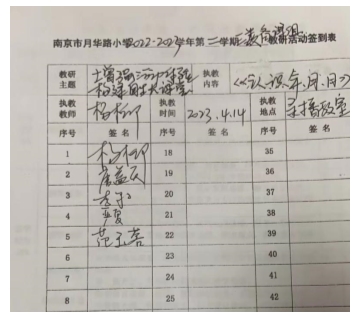 南京市月华路小学2022-2023学年第二学期 教研活动签到表
教研主题 执教内容 《认识年、月、日》
执教教师 杨柳 执教时间 2023.4.14 执教地点 录播教室
序号 签名 序号 签名 序号 签名
1 杨柳 18 35
2 19 36
3 20 37
4 严夏 21 38
5 22 39
6 23 40
7 24 41
8 25 42